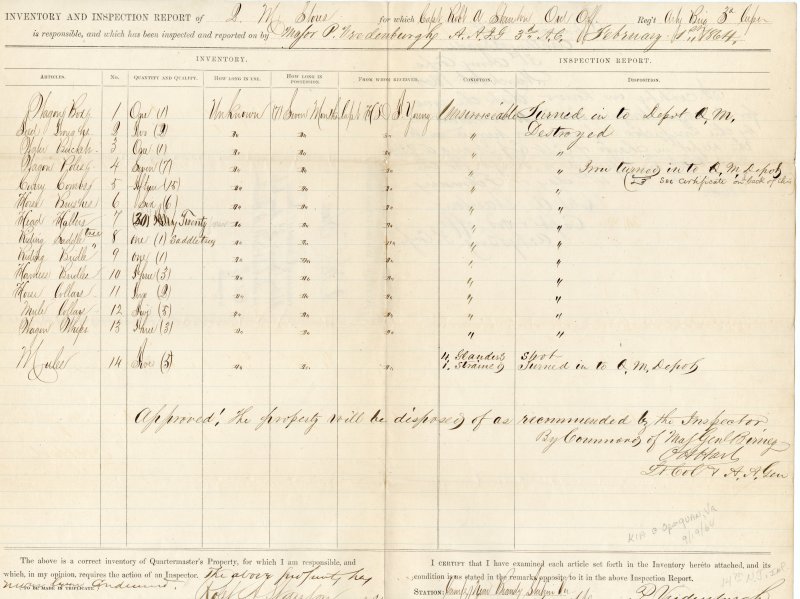 INVENTORY AND INSPECTION REPORT of Q. M. Stores for which Capt Robt A Stanton Qr. Off. Reg't Arty Brig 3d Corps
is responsible, and which has been inspected and reported on by Major P. Vredenburgh A. A. I. G 3d A. C. February 1st, 1864.
INVENTORY. INSPECTION REPORT.
ARTICLES. No. QUANTITY AND QUALITY. HOW LONG IN USE. HOW LONG IN POSSESSION. FROM WHOM RECEIVED. CONDITION. DISPOSITION.
Wagon Body 1 One (1) Unknown (7) Seven Months Capt Young Unserviceable Turned in to Depot Q. M.
2 (2) Do Do Do " Destroyed
Water Buckets 3 One (1) Do Do Do " "
Wagon Poles 4 Seven (7) Do Do Do " " Iron turned in to Q. M. Depot
Curry Combs 5 Fifteen (15) Do Do Do " " see certificate on back of this
Horse Brushes 6 Six (6) Do Do Do " "
Head Halters 7 (20) Twenty Do Do Do " "
Riding Saddle tree 8 one (1) Saddle tree Do Do Do " "
Riding Bridle 9 one (1) Do Do Do " "
Harness Bridles 10 Three (3) Do Do Do " "
Horse Collars 11 (2) Do Do Do " "
Mule Collars 12 (5) Do Do Do " "
Wagon Whips 13 Three (3) Do Do Do " "
Mules 14 Five (5) Do Do Do 4, Glanders Shot
1, Strained Turned in to Q. M. Depot
Approved! The property will be disposed of as recommended by the Inspector
By Command of Maj Genl Birney
O H Hart
Lt Col & A. A. Gen
KIA @ OPEQUAN, VA
9/19/64
14th N.J. Inf.
The above is a correct inventory of Quartermaster's Property, for which I am responsible, and
which, in my opinion, requires the action of an Inspector. The above property has
never been Condemned.
MUST BE MADE IN TRIPLICATE.
Robt A Stanton
I CERTIFY that I have examined each article set forth in the Inventory hereto attached, and its
condition is as stated in the remarks opposite to it in the above Inspection Report.
STATION: Camp Near Brandy Station Va
P. Vredenburgh